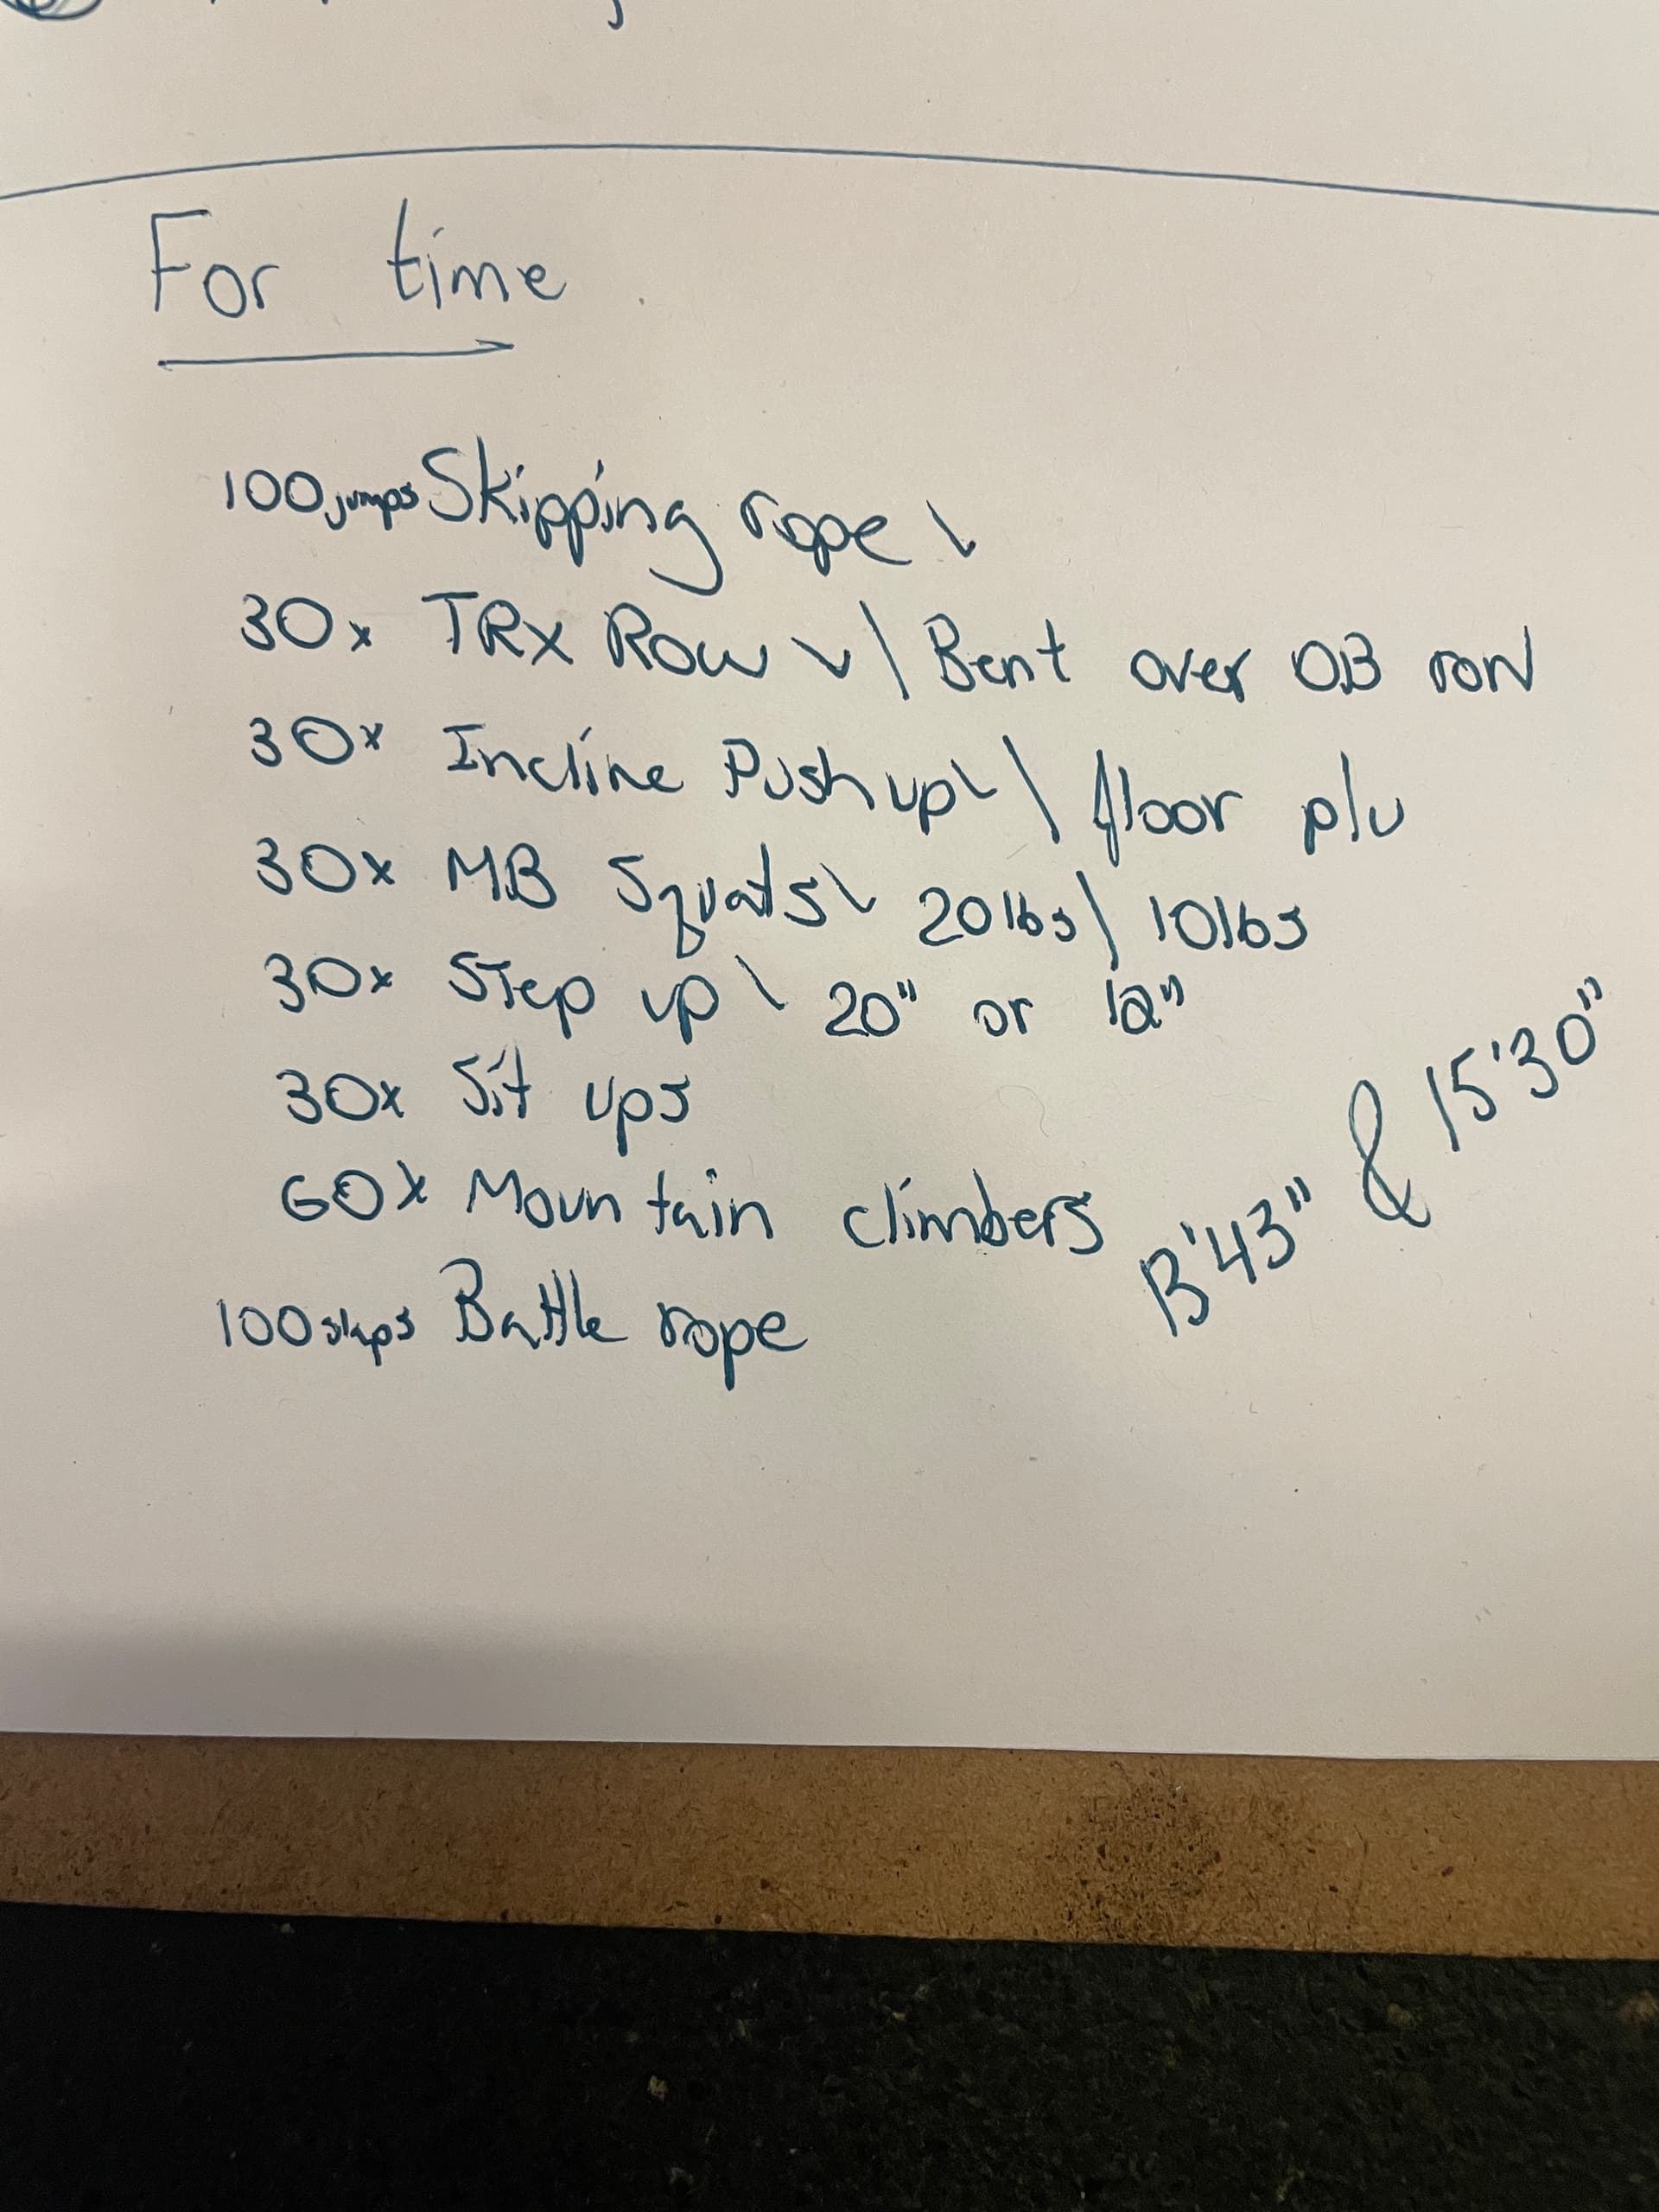 For time
100 jumps Skipping rope
30x TRX Row / Bent over DB row
30x Incline Push up / floor p/u
30x MB Squats 20lbs / 10lbs
30x Step up 20" or 12"
30x Sit ups
60x Mountain climbers
100 slaps Battle rope
13'43" & 15'30"